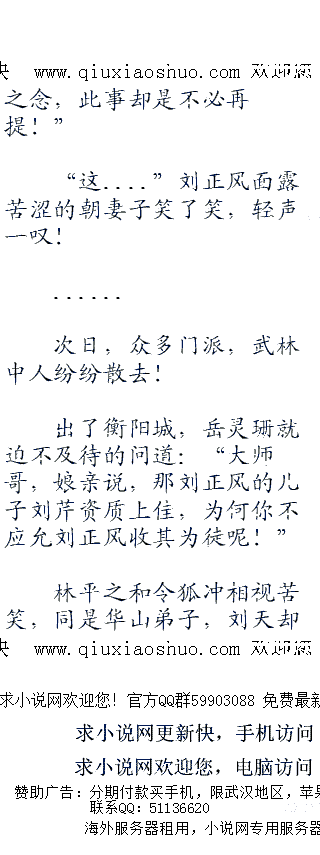 快 www.qiuxiaoshuo.com 欢迎您
之念，此事却是不必再
提！”
“这....”刘正风面露
苦涩的朝妻子笑了笑，轻声
一叹！
......
次日，众多门派，武林
中人纷纷散去！
出了衡阳城，岳灵珊就
迫不及待的问道：“大师
哥，娘亲说，那刘正风的儿
子刘芹资质上佳，为何你不
应允刘正风收其为徒呢！”
林平之和令狐冲相视苦
笑，同是华山弟子，刘天却
快 www.qiuxiaoshuo.com 欢迎您
求小说网欢迎您！官方QQ群59903088 免费最新
求小说网更新快，手机访问
求小说网欢迎您，电脑访问
赞助广告：分期付款买手机，限武汉地区，苹果
联系QQ：51136620
海外服务器租用，小说网专用服务器